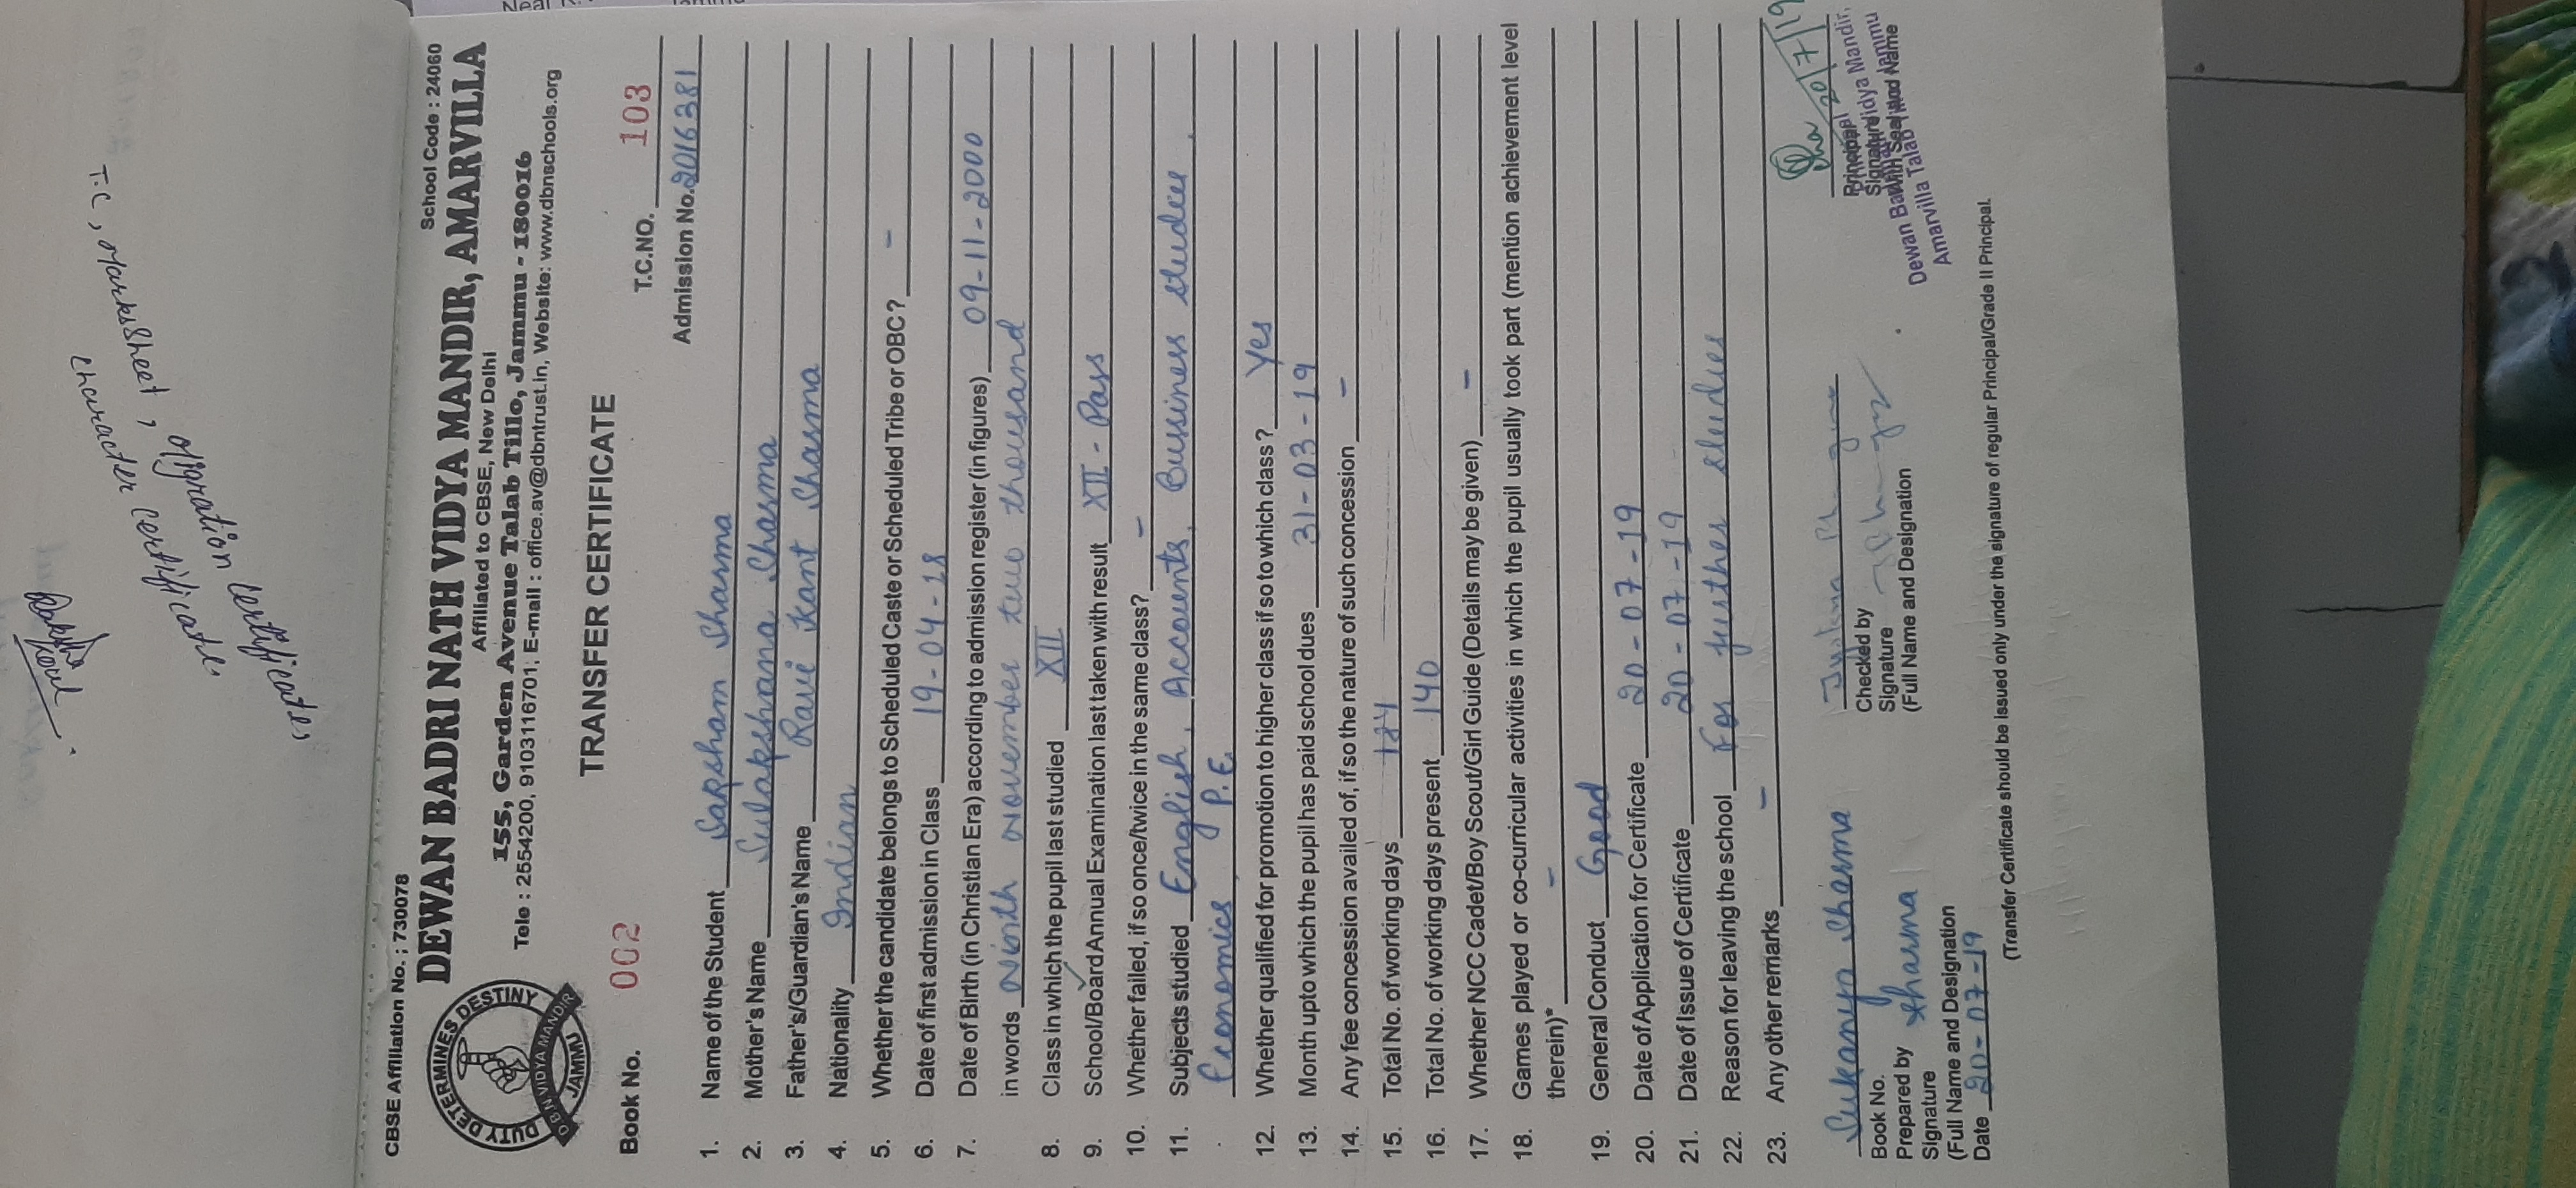 T.C, Marksheet,
character certificate
Migration
certificate
CBSE Affiliation No. ; 730078
School Code : 24060
DEWAN BADRI NATH VIDYA MANDIR, AMARVILLA
Affiliated to CBSE, New Delhi
155, Garden Avenue Talab Tillo, Jammu - 180016
Tele : 2554200, 9103116701, E-mail : office.av@dbntrust.in, Website: www.dbnschools.org
DUTY DETERMINES DESTINY
D.B.N VIDYA MANDIR
JAMMU
TRANSFER CERTIFICATE
Book No. 002
T.C.NO. 103
Admission No. 2016381
1. Name of the Student Saksham Sharma
2. Mother's Name Sulakshana Sharma
3. Father's/Guardian's Name Ravi Kant Sharma
4. Nationality Indian
5. Whether the candidate belongs to Scheduled Caste or Scheduled Tribe or OBC? -
6. Date of first admission in Class 19-04-18
7. Date of Birth (in Christian Era) according to admission register (in figures) 09-11-2000
in words Ninth November two thousand
8. Class in which the pupil last studied XII
9. School/Board Annual Examination last taken with result XII - Pass
10. Whether failed, if so once/twice in the same class? -
11. Subjects studied English, Accounts, Bussiness studies,
Economics P.E.
12. Whether qualified for promotion to higher class if so to which class? Yes
13. Month upto which the pupil has paid school dues 31-03-19
14. Any fee concession availed of, if so the nature of such concession -
15. Total No. of working days 184
16. Total No. of working days present 140
17. Whether NCC Cadet/Boy Scout/Girl Guide (Details may be given) -
18. Games played or co-curricular activities in which the pupil usually took part (mention achievement level
therein)* -
19. General Conduct Good
20. Date of Application for Certificate 20-07-19
21. Date of Issue of Certificate 20-07-19
22. Reason for leaving the school For further studies
23. Any other remarks -
Sukanya Sharma
Book No.
Prepared by Sharma
Signature
(Full Name and Designation
Date 20-07-19
Checked by
Signature
(Full Name and Designation
20/7/19
Principal
Signature
with Seal and Name
Dewan Badri Nath Vidya Mandir,
Amarvilla Talab Tillo Jammu
(Transfer Certificate should be issued only under the signature of regular Principal/Grade II Principal.